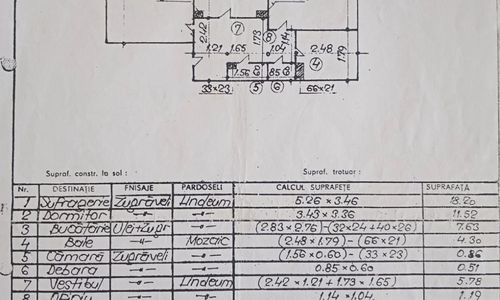 2.42
⑦
⑧
1.73
1.14
1.21 1.65
1.04
2.48
1.79
④
1.56
85
33×23
⑤
⑥
66×21
Supraf. constr. la sol :
Supraf. trotuar :
Nr. DESTINAȚIE FNISAJE PARDOSELI CALCUL SUPRAFEȚE SUPRAFAȚĂ
1 Sufragerie Zugrăveli Linoleum 5.26 × 3.46 18.20
2 Dormitor —"— —"— 3.43 × 3.36 11.52
3 Bucătărie Ulei+zugr —"— (2.83 × 2.76)-(32×24+40×26) 7.63
4 Baie —"— Mozaic (2.48 × 1.79) – (66×21) 4.30
5 Cămară Zugrăveli —"— (1.56 × 0.60) – (33×23) 0.86
6 Debara —"— —"— 0.85 × 0.60 0.51
7 Vestibul —"— Linoleum (2.42 × 1.21 + 1.73 × 1.65) 5.78
8 —"— —"— 1.14 × 1.04 1.19